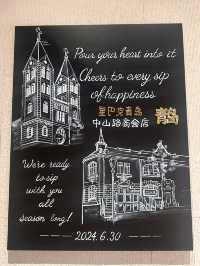 Pour your heart into it
Cheers to every sip
of happiness
星巴克青岛
中山路商会店
We're ready
to sip
with you
all
season long!
2024.6.30